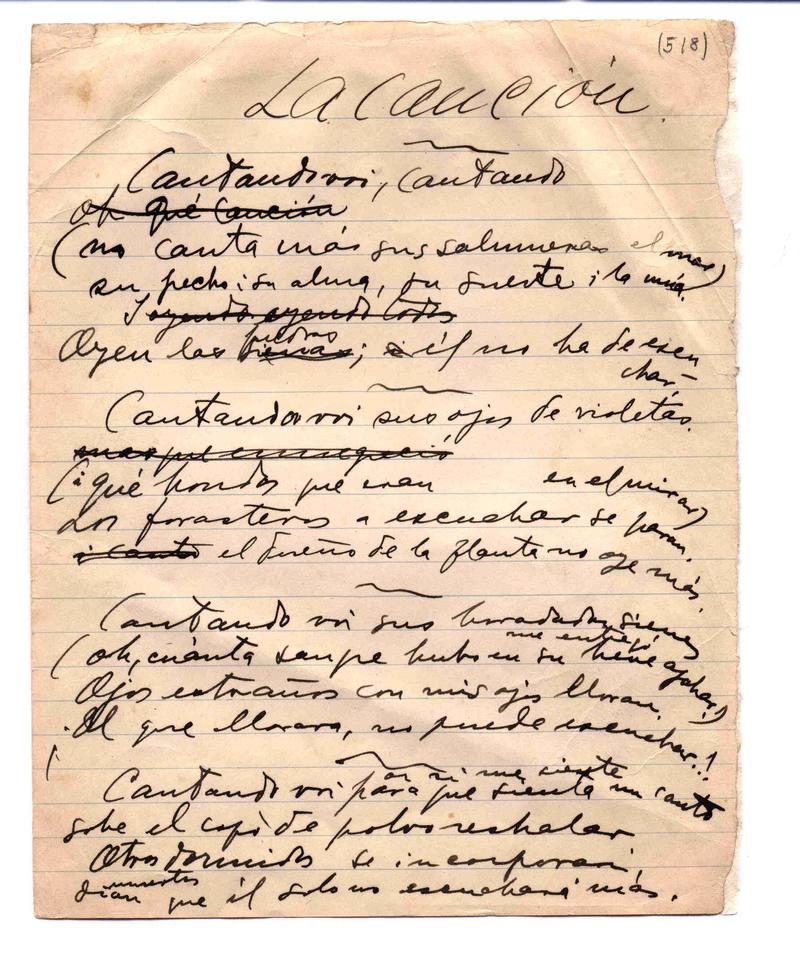 (518)
La canción.
Cantando voi, cantando
oh qué canción
(no canta más sus salmueras el mar)
su pecho i su alma, su suerte i la mía.
I oyendo, oyendo todos
piedras
Oyen las ; i él no ha de escu
char-
Cantando voi sus ojos de violetas.
(i qué hondos que eran en el mirar)
Los forasteros a escuchar se paran.
i canto el dueño de la flauta no oye más.
Cantando voi sus horadadas sienes
me entregó
(oh, cuánta sangre hubo en su )
Ojos extraños con mis ojos lloran.
El que llorara, no puede escuchar...!
(
a ver si me siente
Cantando voi para que sienta un canto
sobre el de polvo resbalar
Otros dormidos se incorporarán
muertos
dirán que él solo no escuchará más.